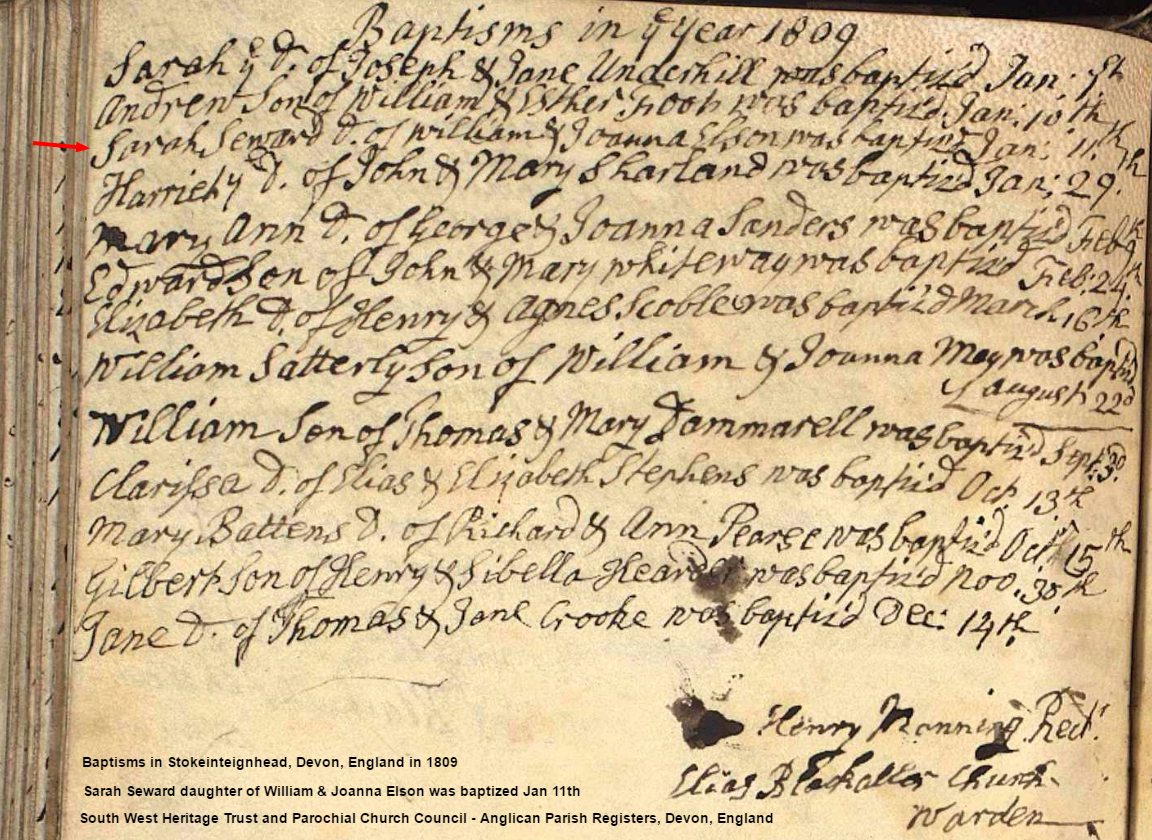 Baptisms in ye Year 1809
Sarah ye D. of Joseph & Jane Underhill was baptiz'd Jan: 7th
Andrew Son of William & Esther Froot was baptiz'd Jan: 10th
Sarah Seward D. of William & Joanna Elson was baptiz'd Jan: 11.th
Harriet y D. of John & Mary Sharland was baptiz'd Jan: 29.th
Mary Ann D. of George & Joanna Sanders was baptiz'd Feb: 9th
Edward Son of John & Mary Whiteway was baptiz'd Feb: 24.th
Elizabeth D. of Henry & Agnes Scoble was baptiz'd March 16th
William Satterly Son of William & Joanna May was baptiz'd
August 22d
William Son of Thomas & Mary Dammarell was baptiz'd Sept: 3d
Clarissa D. of Elias & Elizabeth Stephens was baptiz'd Oct. 13th
Mary Battens D. of Richard & Ann Pearse was baptiz'd Oct: 15th
Gilbert Son of Henry & Sibella Hearder was baptiz'd Nov. 30th
Jane D. of Thomas & Jane Crooke was baptiz'd Dec: 14th
Henry Manning Rect.
Elias Blackaller Church-
Warden
Baptisms in Stokeinteignhead, Devon, England in 1809
Sarah Seward daughter of William & Joanna Elson was baptized Jan 11th
South West Heritage Trust and Parochial Church Council - Anglican Parish Registers, Devon, England